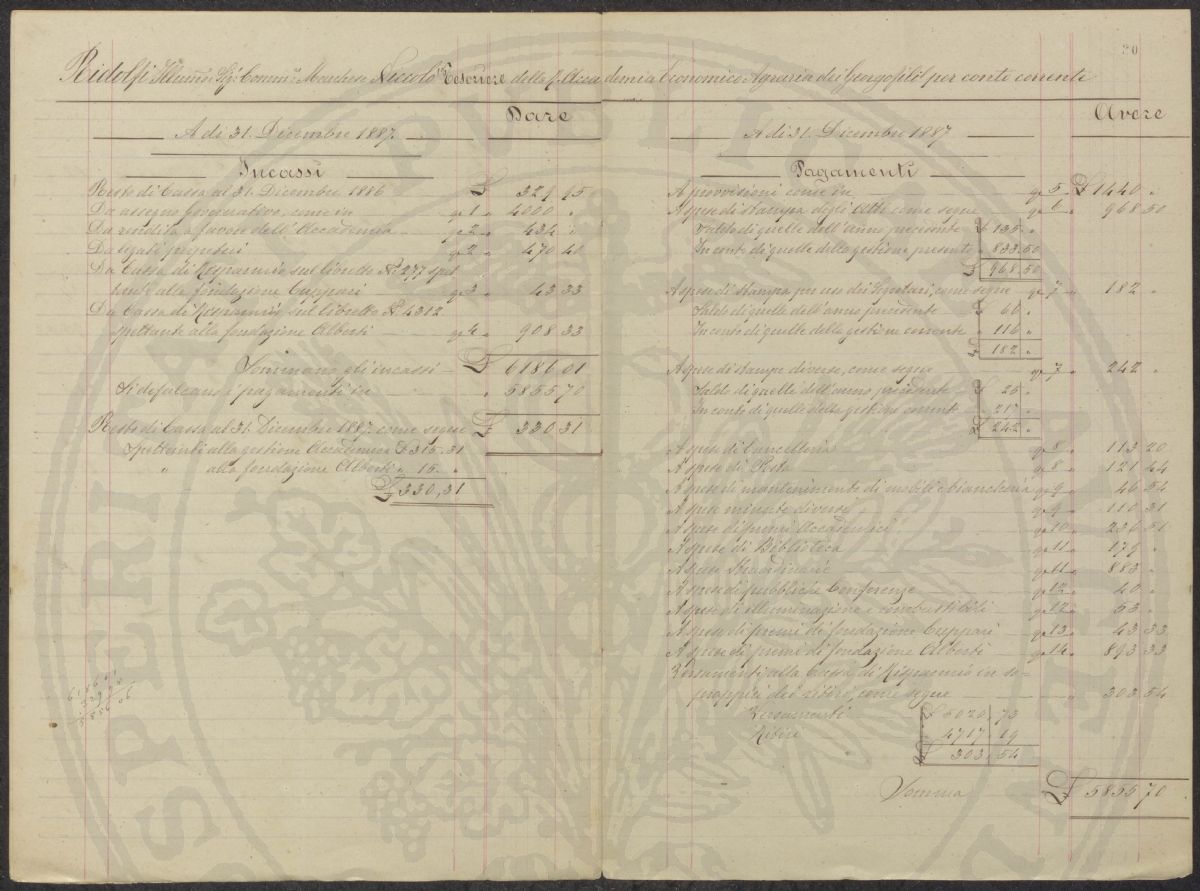 30
Ridolfi Illmo. Sigr. Commre. Marchese Niccolò Tesoriere della R. Accademia Economico Agraria dei Georgofili per conto corrente
Dare
A dì 31. Dicembre 1887.
Incassi
Resto di Cassa al 31. Dicembre 1886 £ 329 95
Da assegno governativo, come in qo 1 „ 4000 „
Da rendita a favore dell'Accademia qo 2 „ 434 „
Da legati perpetui qo 2 „ 470 40
Da Cassa di Risparmio sul libretto N. 277 spet
tante alla fondazione Cuppari qo 3 „ 43 33
Da Cassa di Risparmio, sul libretto No. 4312
spettante alla fondazione Alberti qo 4 „ 908 33
Sommano gli incassi £ 6186 01
Si defalcano i pagamenti in „ 5855 70
Resto di Cassa al 31. Dicembre 1887. come segue £ 330 31
Spettanti alla gestione Accademica £ 315. 31
„ alla fondazione Alberti „ 15. „
£ 330, 31
Avere
A dì 31. Dicembre 1887
Pagamenti
A provvisioni come in qo 5 £ 1440 „
A spese di stampa degli Atti come segue qo 6 „ 968 50
Saldo di quelle dell'anno precedente £ 135 „
In conto di quelle della gestione presente „ 833.50
£ 968.50
A spese di stampa per uso dei Segretari, come segue qo 7 „ 182 „
Saldo di quelle dell'anno precedente £ 66 „
In conto di quelle della gestione corrente „ 116 „
£ 182 „
A spese di stampe diverse, come segue qo 7 „ 242 „
Saldo di quelle dell'anno precedente £ 25 „
In conto di quelle della gestione corrente „ 217 „
£ 242 „
A spese di Cancelleria qo 8 „ 113 20
A spese di Posta qo 8 „ 121 44
A spese di mantenimento di mobili e biancheria qo 9 „ 46 54
A spese minute diverse qo 9 „ 110 31
A spese di premi Accademici qo 10 „ 236 51
A spese di Biblioteca qo 11 „ 179 „
A spese Straordinarie qo 11 „ 883 „
A spese di pubbliche Conferenze qo 12 „ 40 „
A spese di illuminazione e combustibili qo 12 „ 53 „
A spese di premi di fondazione Cuppari qo 13 „ 43 33
A spese di premi di fondazione Alberti qo 14 „ 893 33
Versamenti alla Cassa di Risparmio in so-
prappiù dei ritiri, come segue „ 303 54
Versamenti £ 5020 73
Ritiri „ 4717 19
£ 303 54
Somma £ 5855 70
6186 01
SPERITATI
PUBLIC